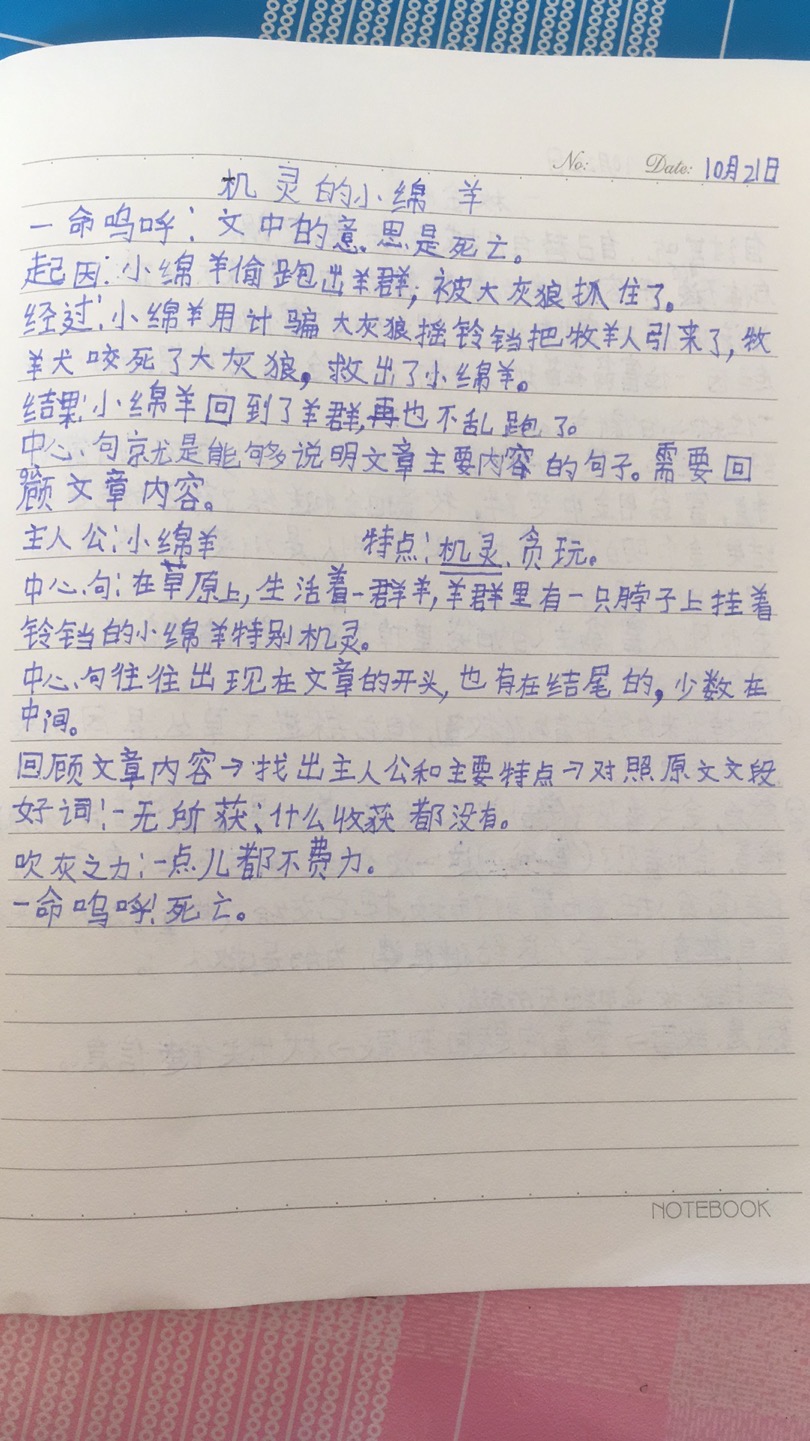 No: Date: 10月21日
机灵的小绵羊
一命呜呼：文中的意思是死亡。
起因：小绵羊偷跑出羊群，被大灰狼抓住了。
经过：小绵羊用计骗大灰狼摇铃铛把牧羊人引来了，牧
羊犬咬死了大灰狼，救出了小绵羊。
结果：小绵羊回到了羊群，再也不乱跑了。
中心句就是能够说明文章主要内容的句子。需要回
顾文章内容。
主人公：小绵羊 特点：机灵、贪玩。
中心句：在草原上，生活着一群羊，羊群里有一只脖子上挂着
铃铛的小绵羊特别机灵。
中心句往往出现在文章的开头，也有在结尾的，少数在
中间。
回顾文章内容→找出主人公和主要特点→对照原文文段
好词：一无所获：什么收获都没有。
吹灰之力：一点儿都不费力。
一命呜呼：死亡。
NOTEBOOK